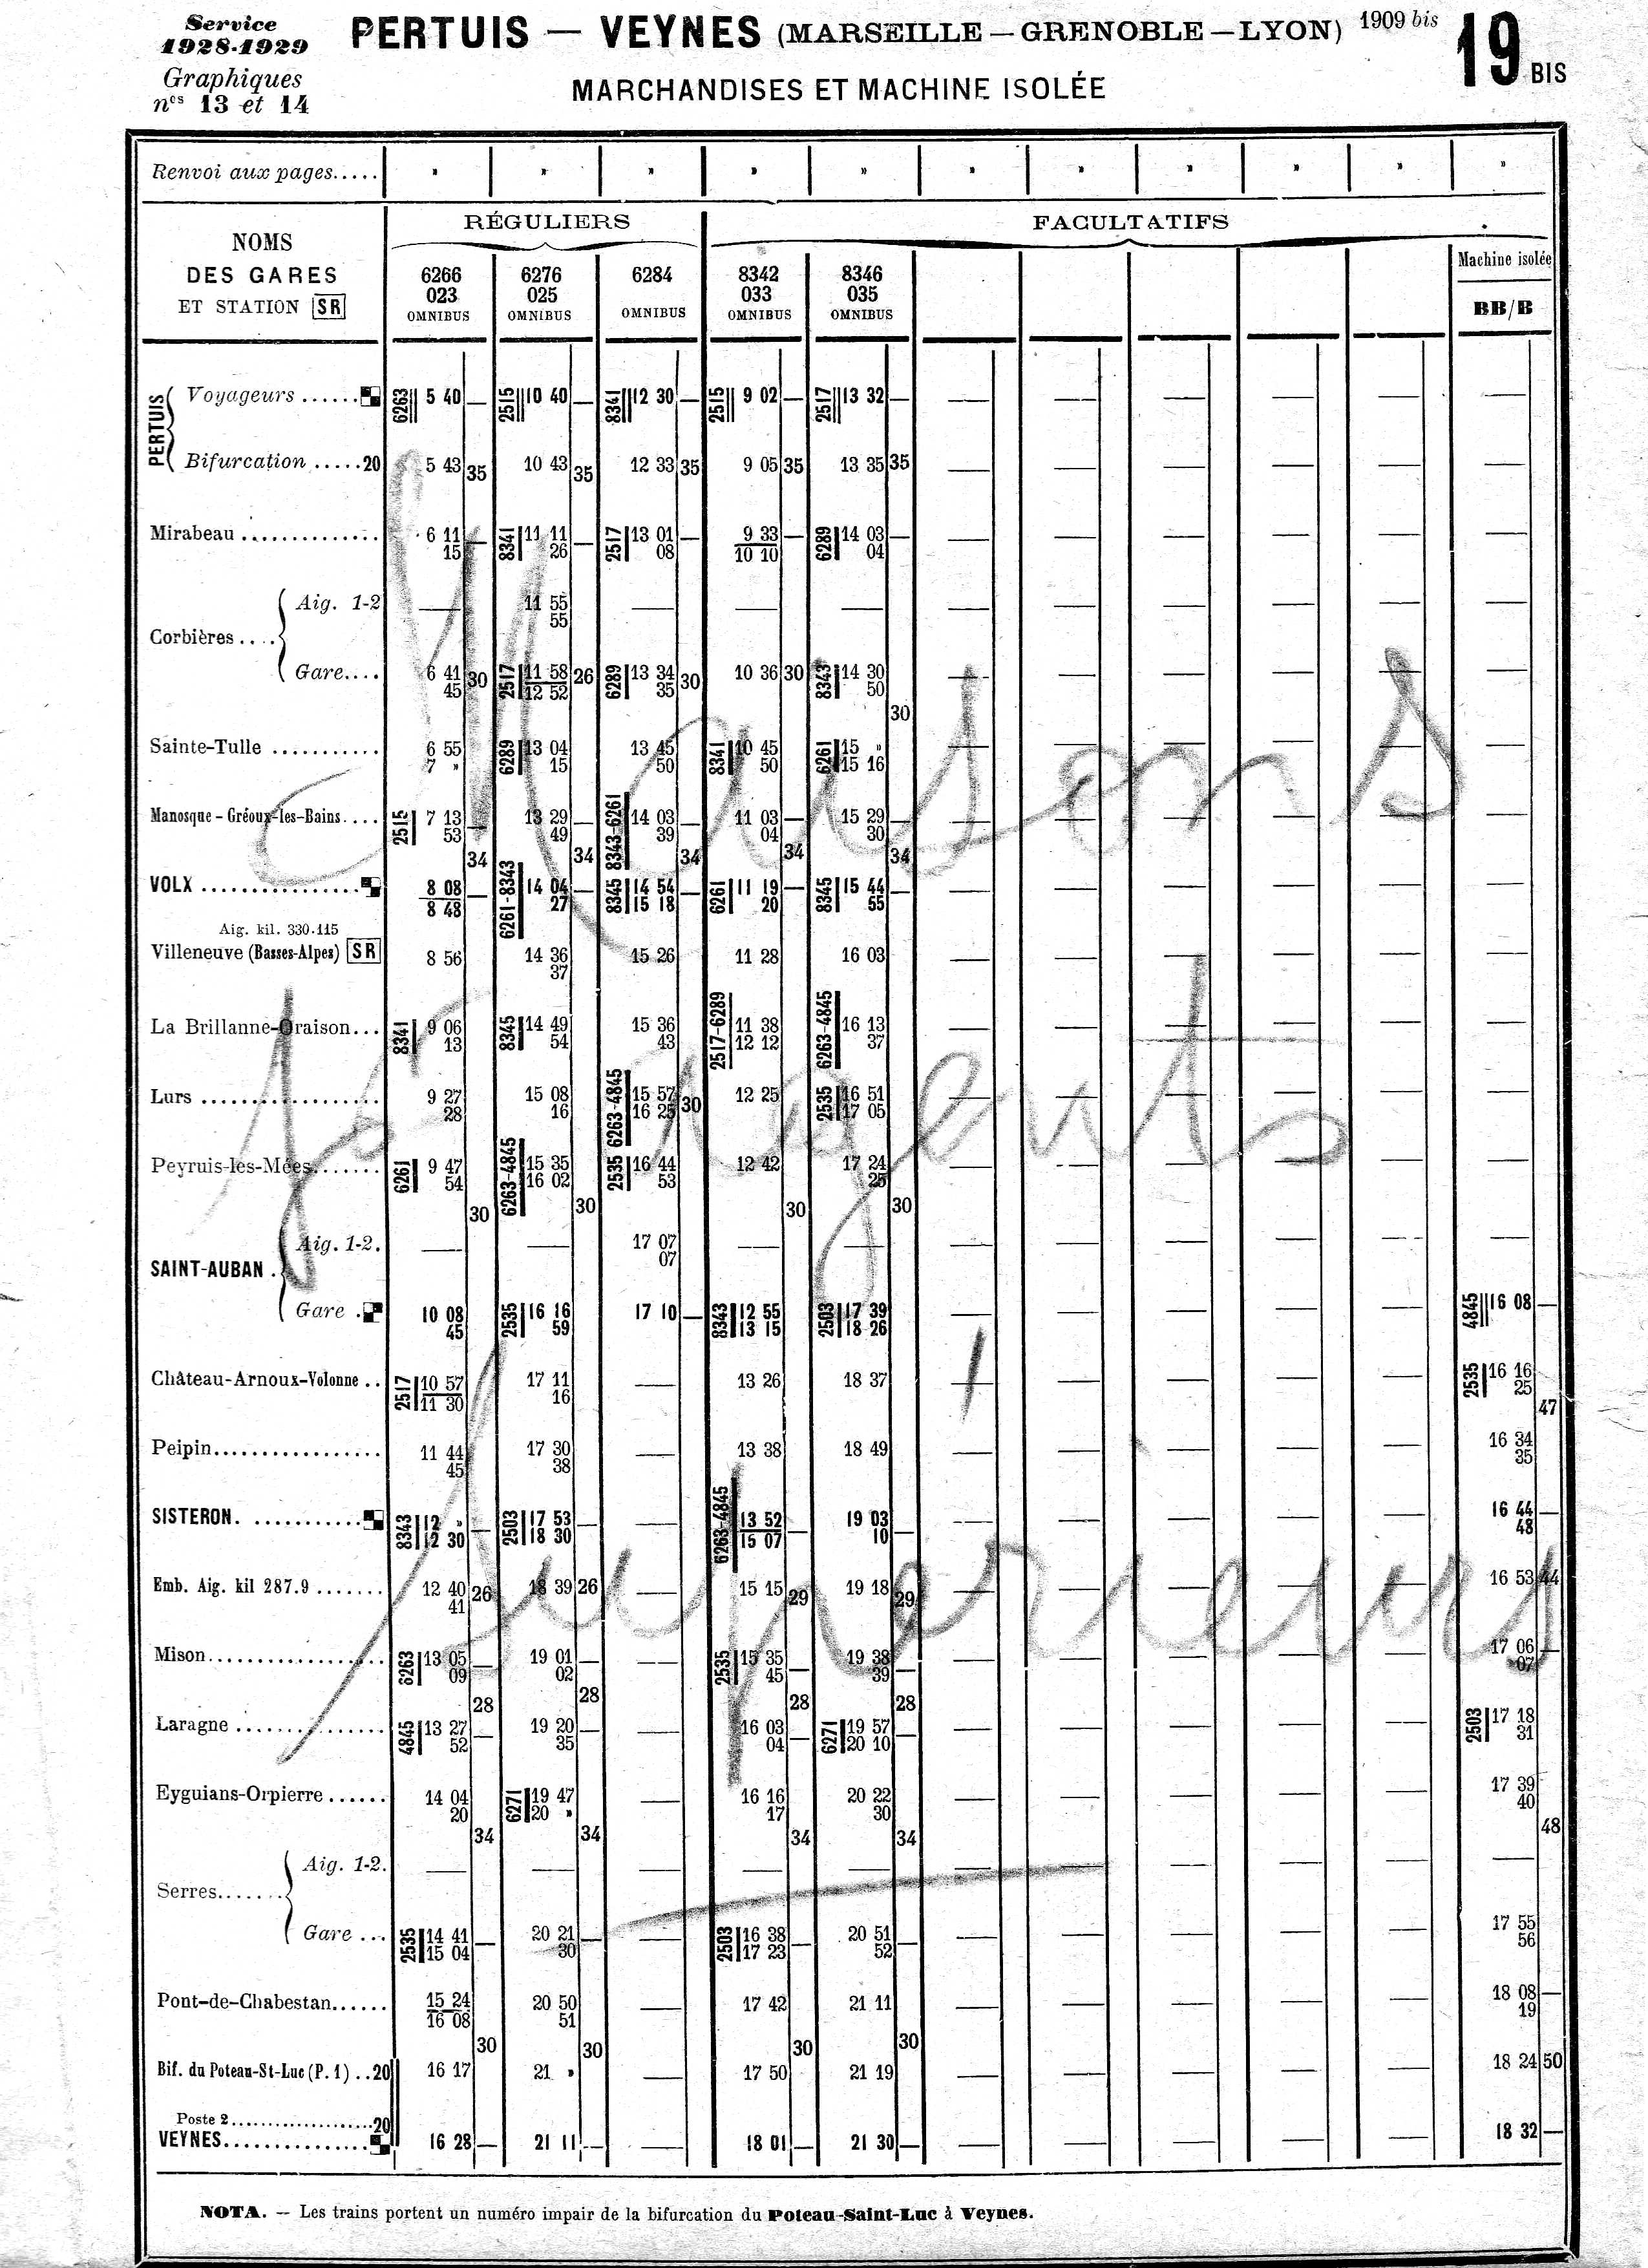 Service
1928-1929
Graphiques
nos 13 et 14
PERTUIS — VEYNES (MARSEILLE — GRENOBLE — LYON) 1909 bis
19 BIS
MARCHANDISES ET MACHINE ISOLÉE
Renvoi aux pages..... » » » » » » » » » » »
NOMS
DES GARES
ET STATION SR
RÉGULIERS FACULTATIFS
Machine isolée
6266 6276 6284 8342 8346 BB/B
023 025 033 035
OMNIBUS OMNIBUS OMNIBUS OMNIBUS OMNIBUS
PERTUIS
Voyageurs ...... 6263 5 40 — 2515 10 40 — 8341 12 30 — 2515 9 02 — 2517 13 32 —
Bifurcation .....20 5 43 35 10 43 35 12 33 35 9 05 35 13 35 35
Mirabeau .............. 6 11 — 8341 11 11 — 2517 13 01 — 9 33 — 6289 14 03 —
15 26 08 10 10 04
Corbières....
Aig. 1-2 — 11 55 — — —
55
Gare.... 6 41 30 2517 11 58 26 6289 13 34 30 10 36 30 8343 14 30
45 12 52 35 50
30
Sainte-Tulle ........... 6 55 6289 13 04 13 45 8341 10 45 6261 15 »
7 » 15 50 50 15 16
Manosque-Gréoux-les-Bains.... 2515 7 13 — 13 29 — 8343-6261 14 03 — 11 03 — 15 29 —
53 49 39 04 30
34 34 34 34 34
VOLX ................ 8 08 — 6261-8343 14 04 — 8345 14 54 — 6261 11 19 — 8345 15 44 —
8 48 27 15 18 20 55
Aig. kil. 330.115
Villeneuve (Basses-Alpes) SR 8 56 14 36 15 26 11 28 16 03
37
La Brillanne-Oraison... 8341 9 06 8345 14 49 15 36 2517-6289 11 38 6263-4845 16 13
13 54 43 12 12 37
Lurs ................... 9 27 15 08 6263-4845 15 57 30 12 25 2535 16 51
28 16 16 25 17 05
Peyruis-les-Mées....... 6261 9 47 6263-4845 15 35 2535 16 44 12 42 17 24
54 16 02 53 25
30 30 30 30
SAINT-AUBAN .
Aig. 1-2. — — 17 07 — —
07
Gare . 10 08 2535 16 16 17 10 — 8343 12 55 2503 17 39 4845 16 08 —
45 59 13 15 18 26
Château-Arnoux-Volonne .. 2517 10 57 17 11 — 13 26 18 37 2535 16 16
11 30 16 25
47
Peipin................. 11 44 17 30 — 13 38 18 49 16 34
45 38 35
SISTERON. ........... 8343 12 » — 2503 17 53 — 6263-4845 13 52 — 19 03 — 16 44 —
12 30 18 30 15 07 10 48
Emb. Aig. kil 287.9 ....... 12 40 26 18 39 26 — 15 15 29 19 18 29 16 53 44
41
Mison.................. 6263 13 05 — 19 01 — — 2535 15 35 — 19 38 — 17 06 —
09 02 45 39 07
28 28 28 28
Laragne ............... 4845 13 27 — 19 20 — 16 03 — 6271 19 57 — 2503 17 18
52 35 04 20 10 31
Eyguians-Orpierre ...... 14 04 6271 19 47 — 16 16 20 22 17 39
20 20 » 17 30 40
34 34 34 34 48
Serres.......
Aig. 1-2. — — — — — —
Gare ... 2535 14 41 — 20 21 — — 2503 16 38 — 20 51 — 17 55
15 04 30 17 23 52 56
Pont-de-Chabestan...... 15 24 20 50 — 17 42 21 11 18 08 —
16 08 51 19
30 30 30 30
Bif. du Poteau-St-Luc (P. 1) ..20 16 17 21 » — 17 50 21 19 18 24 50
Poste 2....................20
VEYNES............... 16 28 — 21 11 — — 18 01 — 21 30 — 18 32 —
NOTA. — Les trains portent un numéro impair de la bifurcation du Poteau-Saint-Luc à Veynes.